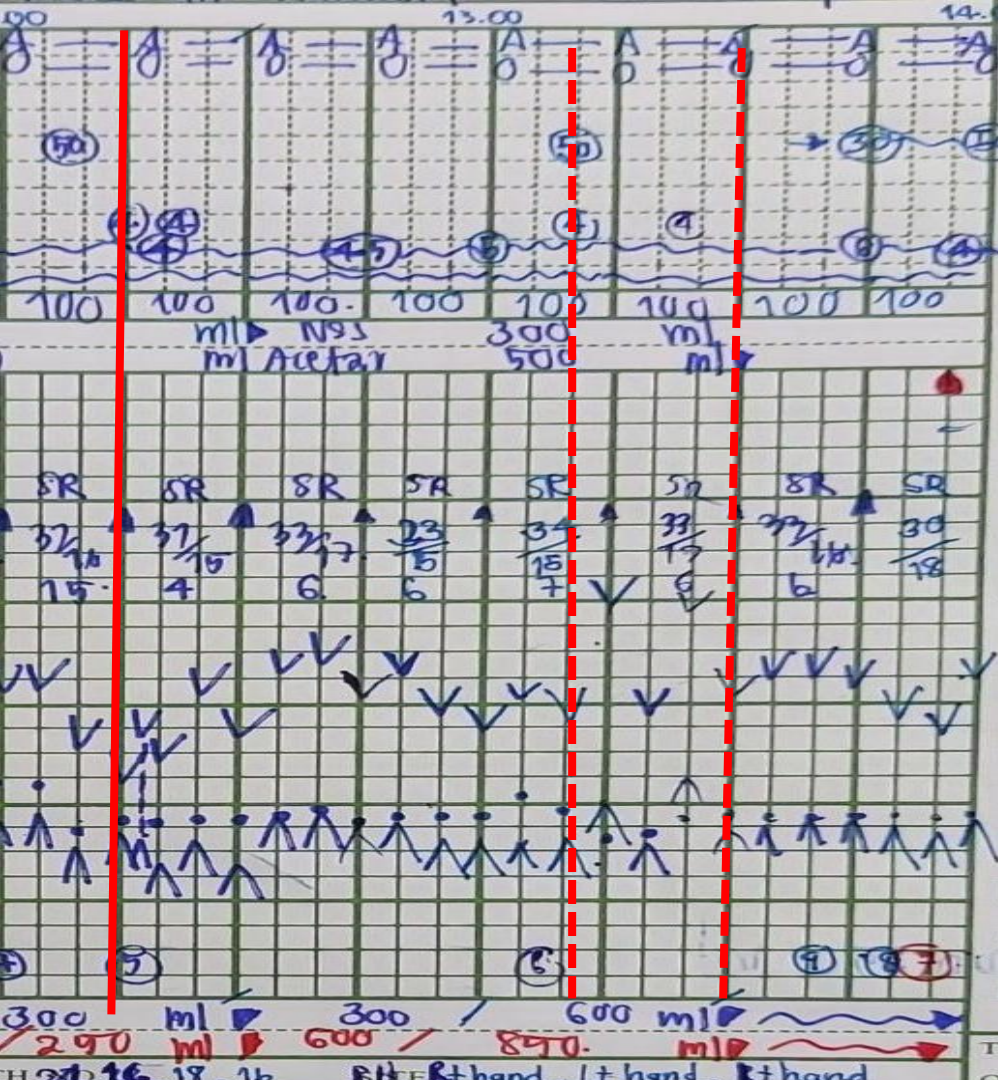 00 13.00 14.
A = A = A = A = A = A = A = A = A
O O O O O O O O O
50 50 → 30
4 4 4
4 4-5 5 6 4
100 100 100. 100 100 100 100 100
ml ▶ NSS 300 ml
ml Acetar 500 ml ▶
SR SR SR SR SR SR SR SR
32/16 37/15 33/17 23/15 34/15 33/17 32/16 30/18
15. 4 6 6 7 6 6
5 6 9 8 7
300 ml ▶ 300 / 600 ml ▶
/ 290 ml ▶ 600 / 890. ml ▶
18 16 Rt hand Lt hand Rt hand